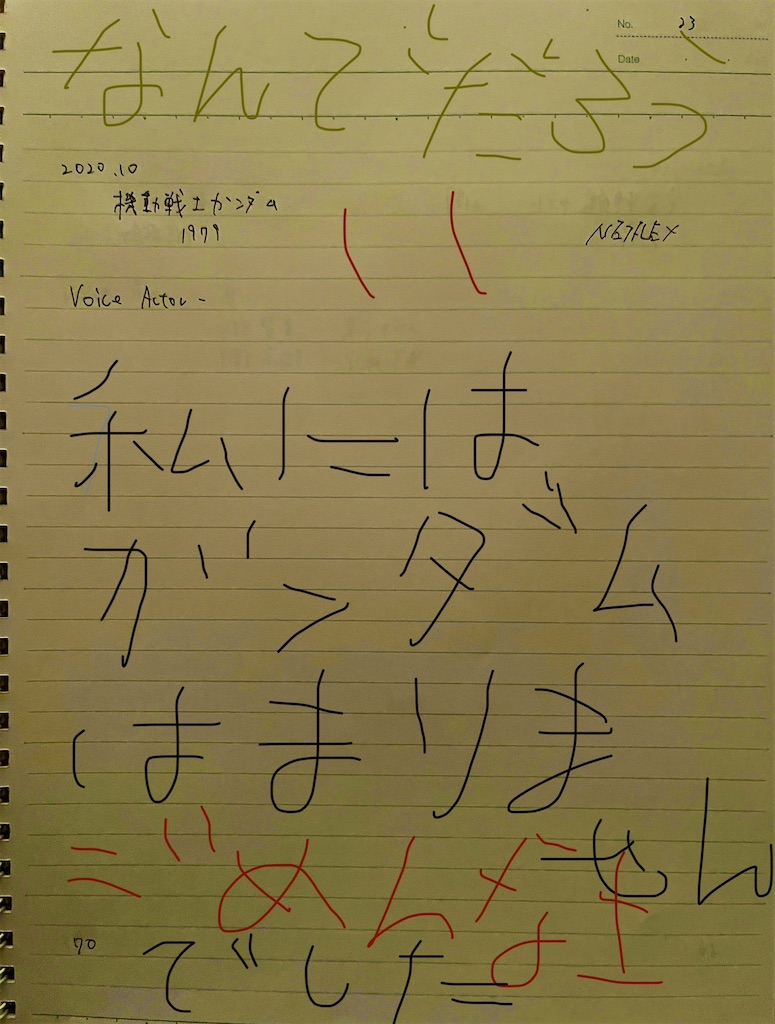 No. 23
なんでだろう
Date
2020.10
機動戦士ガンダム
1979
NETFLEX
Voice Actor -
私には
ガンダム
はまりま
せん
ごめんなさい
70
でした